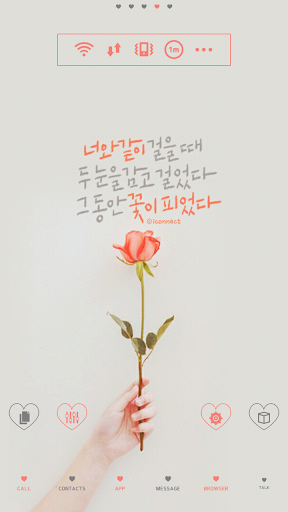 1m
너와 같이 걸을 때
두 눈을 감고 걸었다
그동안 꽃이 피었다
©iconnect
CALL
CONTACTS
APP
MESSAGE
BROWSER
TALK